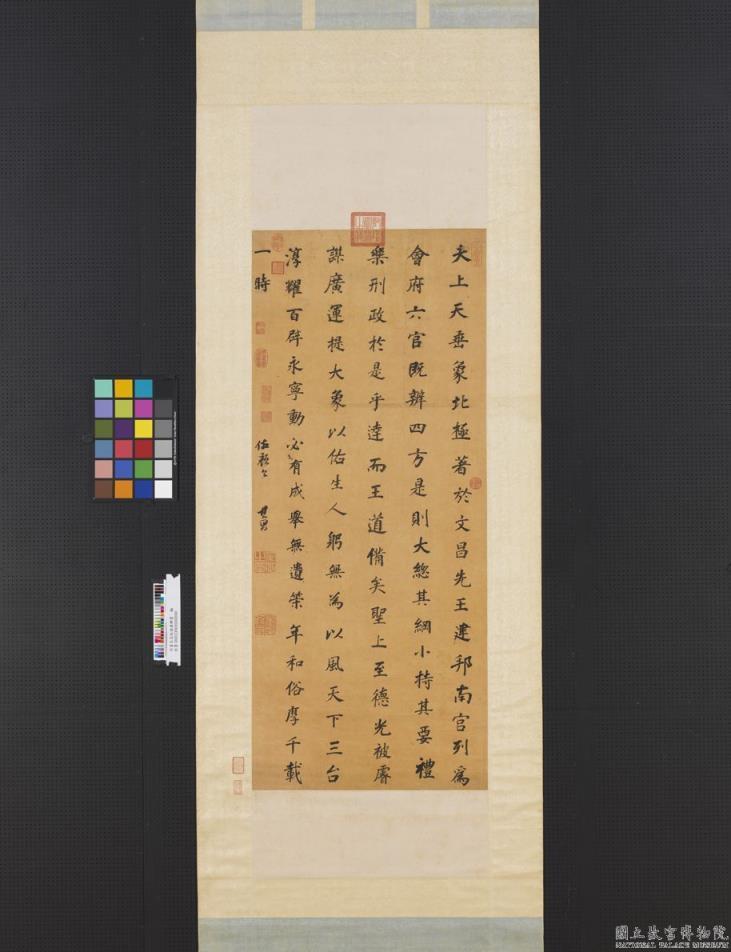 夫上天垂象北極著於文昌先王建邦南宫列爲
會府六官既辨四方是則大總其綱小持其要禮
樂刑政於是乎達而王道備矣聖上至德光被睿
謀廣運提大象以佑生人躬無為以風天下三台
淳耀百辟永寧動必有成舉無遺策年和俗厚千載
一時
國立故宮博物院
NATIONAL PALACE MUSEUM